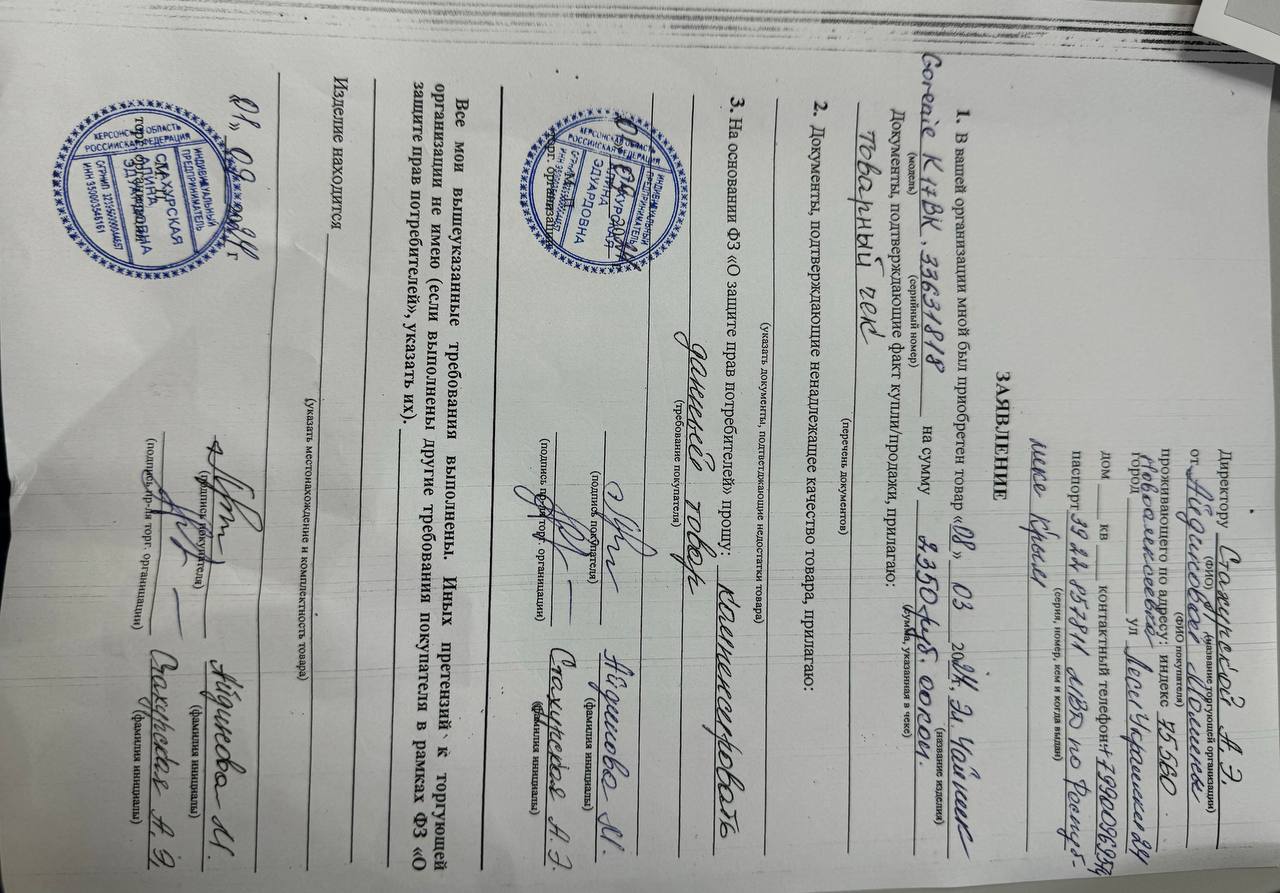 Директору Стахурской А. Э.
(ФИО) (название торгующей организации)
от Айдиновой
(ФИО покупателя)
проживающего по адресу: индекс 75560
Новоалексеевка
город ул Леси Украинки 24
дом кв контактный телефон:+79900963254
паспорт 3922 857811 МВД по Республ-
(серия, номер, кем и когда выдан)
лике Крым
ЗАЯВЛЕНИЕ
1. В вашей организации мной был приобретен товар «08» 03 2024, Эл. Чайник
(название изделия)
Gorenie K17BK, 33631818 на сумму 2350 руб. 00коп.
(модель) (серийный номер) (сумма, указанная в чеке)
Документы, подтверждающие факт купли/продажи, прилагаю:
товарный чек
(перечень документов)
2. Документы, подтверждающие ненадлежащее качество товара, прилагаю:
(указать документы, подтветджающие недостатки товара)
3. На основании ФЗ «О защите прав потребителей» прошу:
(требование покупателя)
данный товар
Айдинова М.
(подпись покупателя) (фамилия инициалы)
Стахурская А. Э.
(подпись пр-ля торг. организации) (фамилия инициалы)
торг. организации
ХЕРСОНСКАЯ ОБЛАСТЬ
РОССИЙСКАЯ ФЕДЕРАЦИЯ
ИНДИВИДУАЛЬНЫЙ
ПРЕДПРИНИМАТЕЛЬ
СТАХУРСКАЯ
АЛИНА
ЭДУАРДОВНА
Все мои вышеуказанные требования выполнены. Иных претензий к торгующей
организации не имею (если выполнены другие требования покупателя в рамках ФЗ «О
защите прав потребителей», указать их).
(указать местонахождение и комплектность товара)
Изделие находится
Айдинова М.
(подпись покупателя) (фамилия инициалы)
Стахурская А. Э.
(подпись пр-ля торг. организации) (фамилия инициалы)
ХЕРСОНСКАЯ ОБЛАСТЬ
РОССИЙСКАЯ ФЕДЕРАЦИЯ
ИНДИВИДУАЛЬНЫЙ
ПРЕДПРИНИМАТЕЛЬ
СТАХУРСКАЯ
АЛИНА
ЭДУАРДОВНА